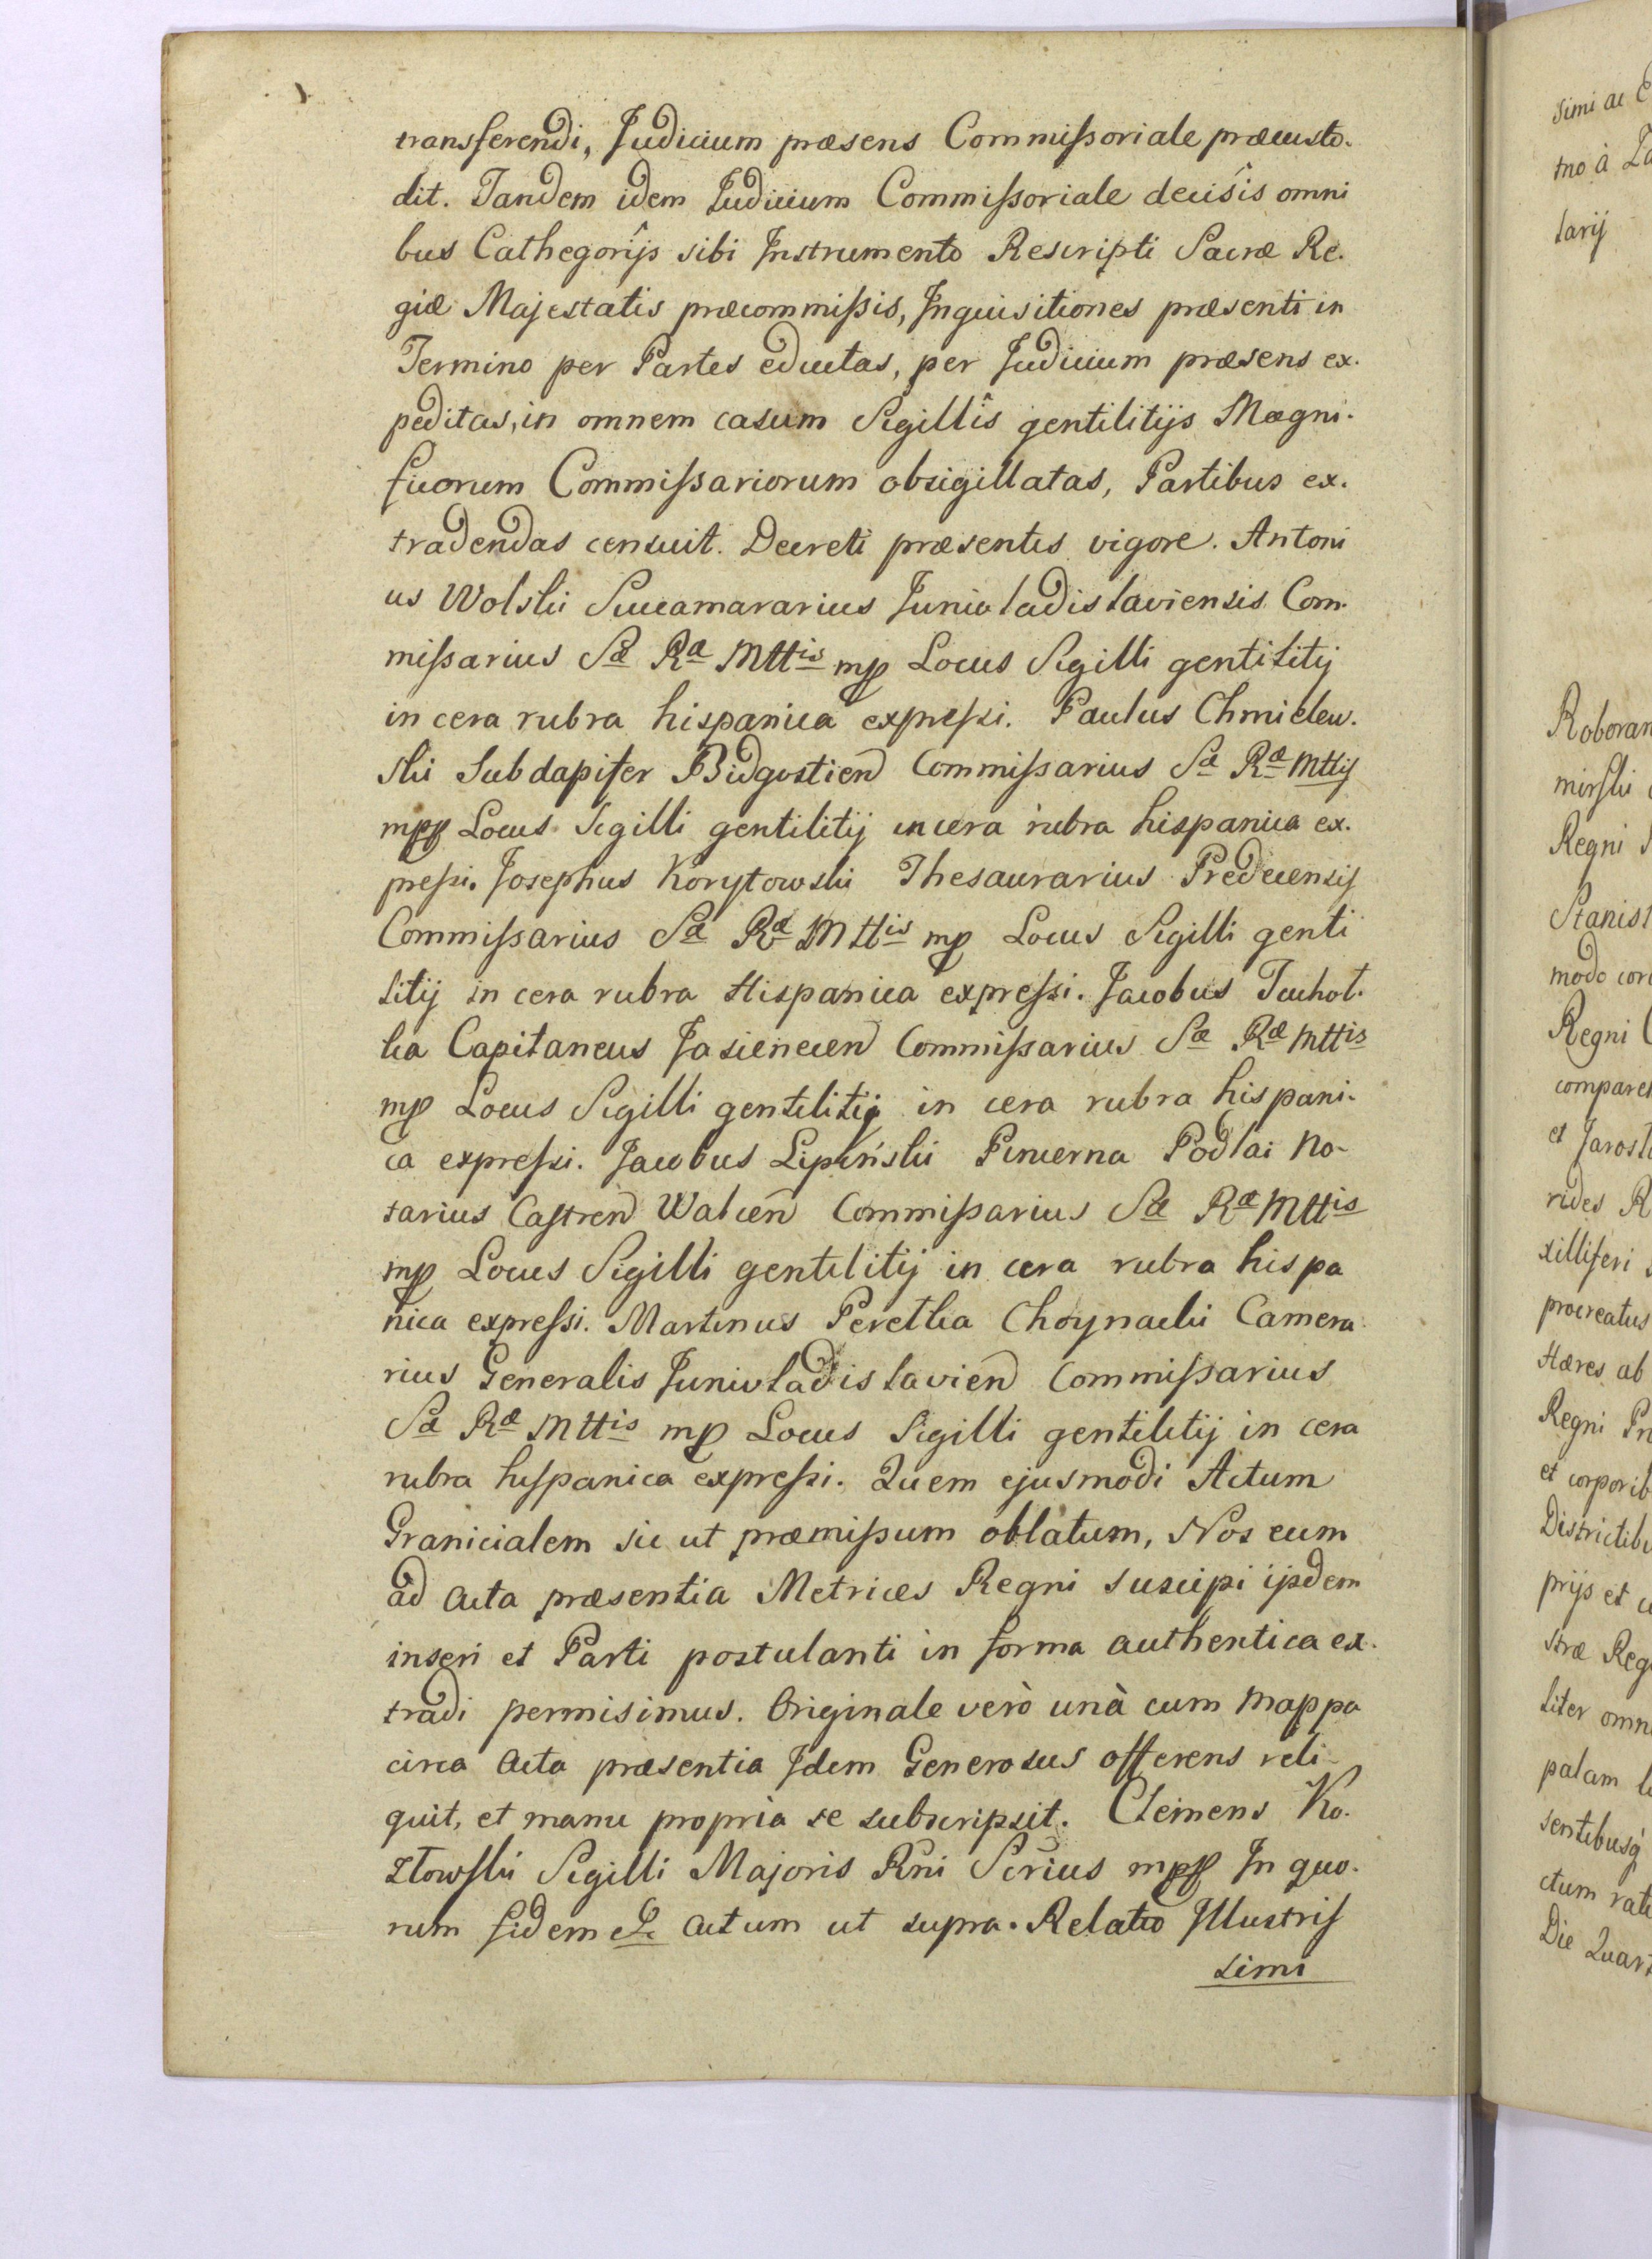 transferendi, Judicium præsens Commissoriale præcusto-
dit. Tandem idem Judicium Commissoriale decisîs omni
bus Cathegorîjs sibi Instrumento Rescripti Sacræ Re-
giæ Majestatis præcommissis, Inquisitiones præsenti in
Termino per Partes eductas, per Judicium præsens ex-
peditas, in omnem casum Sigillîs gentilitijs Magni-
ficorum Commissariorum obsigillatas, Partibus ex-
tradendas censuit. Decreti præsentis vigore. Antoni
us Wolski Succamararius Juniuladislaviensis Com-
missarius Sæ Ræ Mttis mp Locus Sigilli gentilitij
in cera rubra hispanica expressi. Paulus Chmielew-
ski Subdapifer Bidgostien Commissarius Sæ Ræ Mttis
mpp Locus Sigilli gentilitij in cera rubra hispanica ex-
pressi. Josephus Korytowski Thesaurarius Predecensis
Commissarius Sæ Ræ Mttis mp Locus Sigilli genti
litij in cera rubra Hispanica expressi. Jacobus Tuchoł-
ka Capitaneus Jasienecen Commissarius Sæ Ræ Mttis
mp Locus Sigilli gentilitij in cera rubra hispani-
ca expressi. Jacobus Lipiński Pincerna Podlai No-
tarius Castren Walcen Commissarius Sæ Ræ Mttis
mp Locus Sigilli gentilitij in cera rubra hispa
nica expressi. Martinus Peretka Choynacki Camera-
rius Generalis Juniuladislavien Commissarius
Sæ Ræ Mttis mp Locus Sigilli gentilitij in cera
rubra hispanica expressi. Quem ejusmodi Actum
Granicialem sic ut præmissum oblatum, Nos eum
ad Acta præsentia Metrices Regni suscipi ijsdem
inseri et Parti postulanti in forma authentica ex-
tradi permisimus. Originale verò unà cum Mappa
circa Acta præsentia Idem Generosus offerens reli-
quit, et manu propria se subscripsit. Clemens Ko-
złowski Sigilli Majoris Rni Scrius mpp In quo-
rum fidem &c. Actum ut supra. Relatio Illustris
simi
simi ac
mo à
tarij
Roboran
mirski
Regni
Stanisl
modo
Regni
compare
et Jarosl
rides R
xilliferi
procreatus
Hæres ab
Regni Pr
et corporib
Districtibu
prijs et
stræ Reg
liter omn
palam
sentibusq
ctum rat
Die Quart